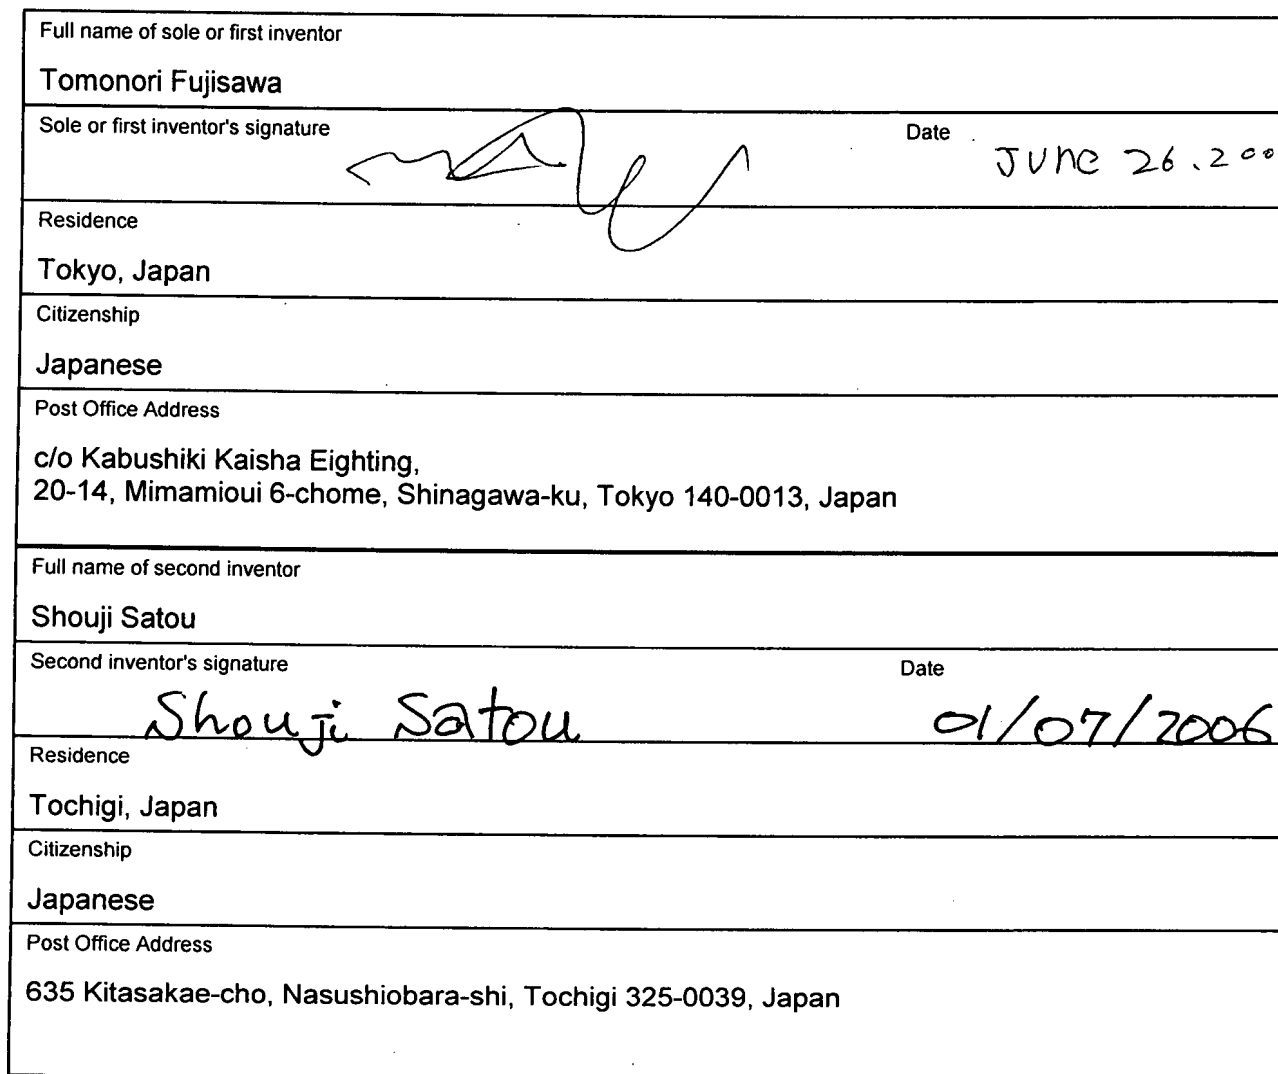 Full name of sole or first inventor
Tomonori Fujisawa
Sole or first inventor's signature
Date
June 26.200
Residence
Tokyo, Japan
Citizenship
Japanese
Post Office Address
c/o Kabushiki Kaisha Eighting,
20-14, Mimamioui 6-chome, Shinagawa-ku, Tokyo 140-0013, Japan
Full name of second inventor
Shouji Satou
Second inventor's signature
Date
Shouji Satou 01/07/2006
Residence
Tochigi, Japan
Citizenship
Japanese
Post Office Address
635 Kitasakae-cho, Nasushiobara-shi, Tochigi 325-0039, Japan